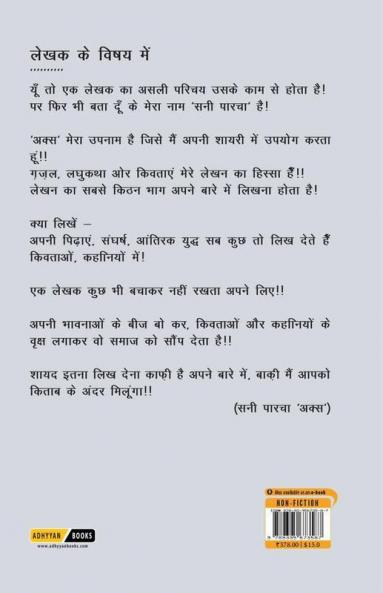 लेखक के विषय में
..........
यूँ तो एक लेखक का असली परिचय उसके काम से होता है!
पर फिर भी बता दूँ के मेरा नाम 'सनी पारचा' है!
'अक्स' मेरा उपनाम है जिसे मैं अपनी शायरी में उपयोग करता
हूं!!
ग़ज़ल, लघुकथा ओर किवताएं मेरे लेखन का हिस्सा हैं!!
लेखन का सबसे किठन भाग अपने बारे में लिखना होता है!
क्या लिखें –
अपनी पिढ़ाएं, संघर्ष, आंतिरक युद्ध सब कुछ तो लिख देते हैं
किवताओं, कहानियों में!
एक लेखक कुछ भी बचाकर नहीं रखता अपने लिए!!
अपनी भावनाओं के बीज बो कर, किवताओं और कहानियों के
वृक्ष लगाकर वो समाज को सौंप देता है!!
शायद इतना लिख देना काफ़ी है अपने बारे में, बाक़ी मैं आपको
किताब के अंदर मिलूंगा!!
(सनी पारचा 'अक्स')
ADHYYAN BOOKS
www.adhyyanbooks.com
Also available as an e-book
NON-FICTION
₹378.00 | $15.0